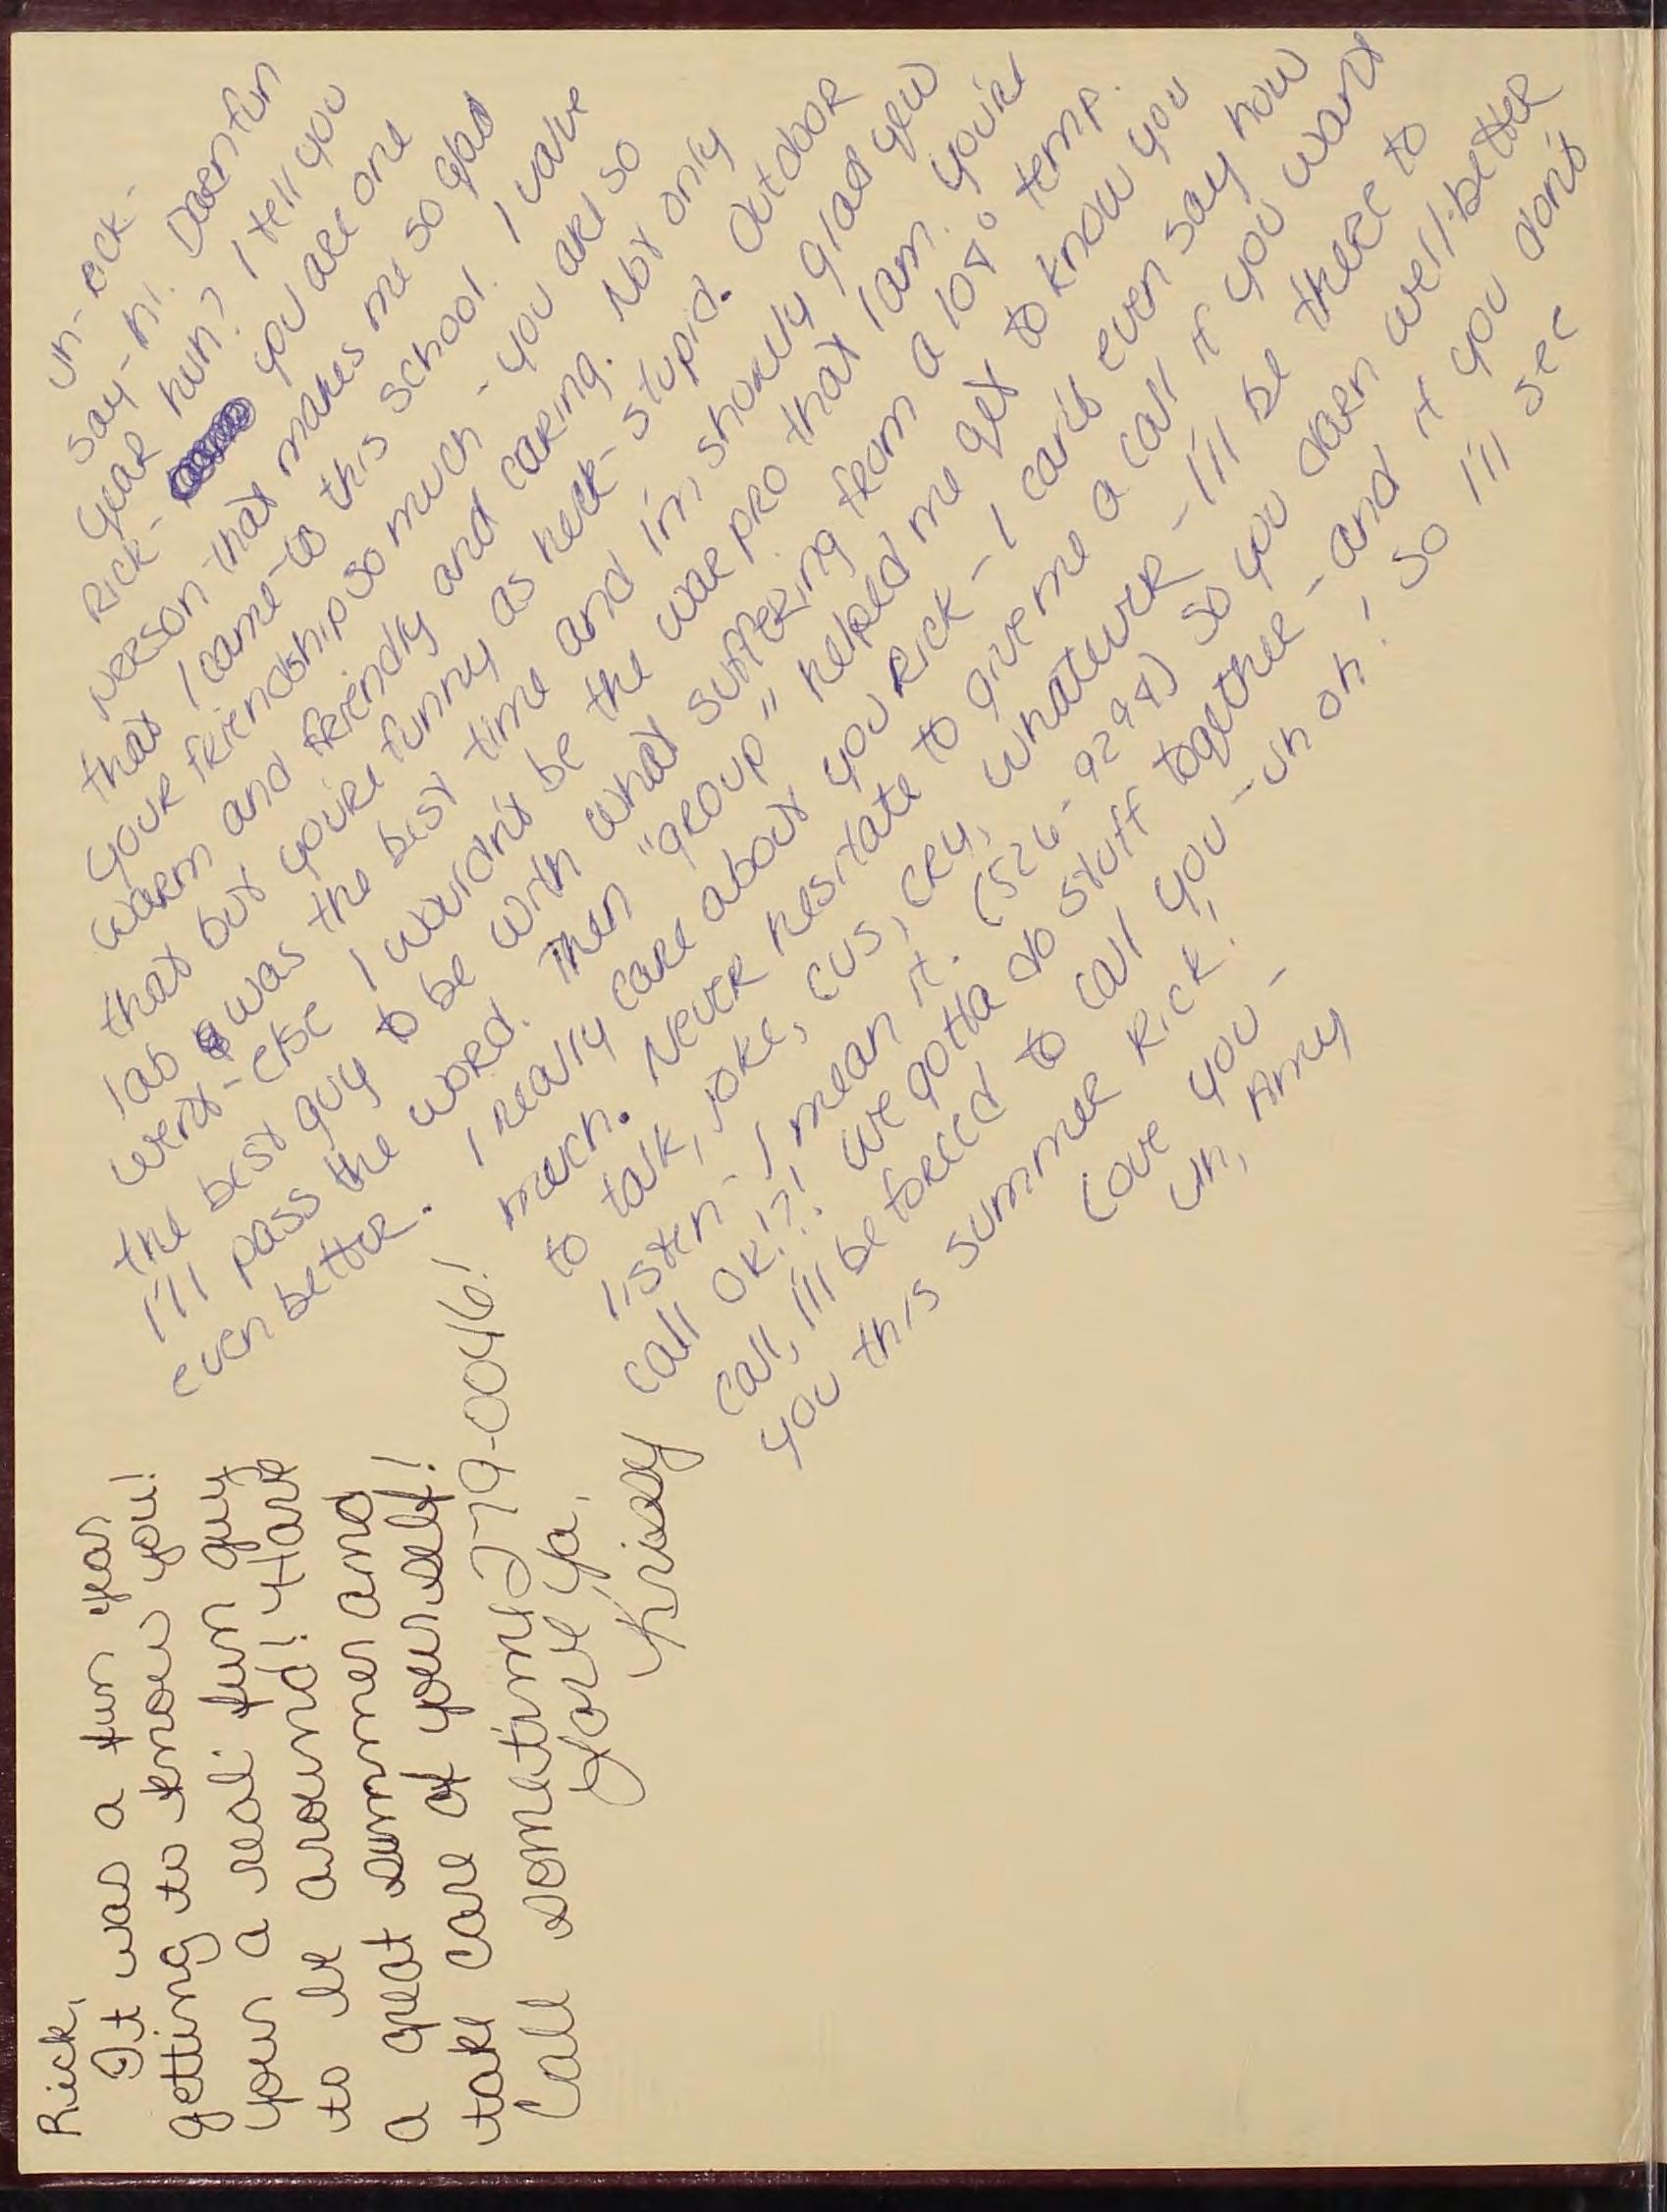 Rick,
It was a fun year
getting to know you!
Your a real fun guy
to be around! Have
a great summer and
take care of yourself!
Call sometime 279-0046!
Love Ya,
Krissy
uh - eck -
say - hi. Darn fun
year huh? I tell you
Rick - you are one
person that makes me so glad
that I came to this school. I value
your friendship so much - you are so
warm and friendly and caring. Not only
that but you're funny as heck - stupid outdoor
lab was the best time and I'm showly glad you
went - else I wouldn't be the war pro that I am. You're
the best guy to be with when suffering from a loss o temp.
I'll pass the word. Then "group" helped me get to know you
even better. I really care about you Rick - I can't even say how
much. Never hesitate to give me a call if you want
to talk, joke, cus, cry, whatever - I'll be there to
listen - I mean it. (526-9298) so you darn well better
call ok!?! We gotta do stuff together - and if you don't
call, I'll be forced to call you - uh oh! - so I'll see
you this summer Rick!!
Love you -
uh, Amy